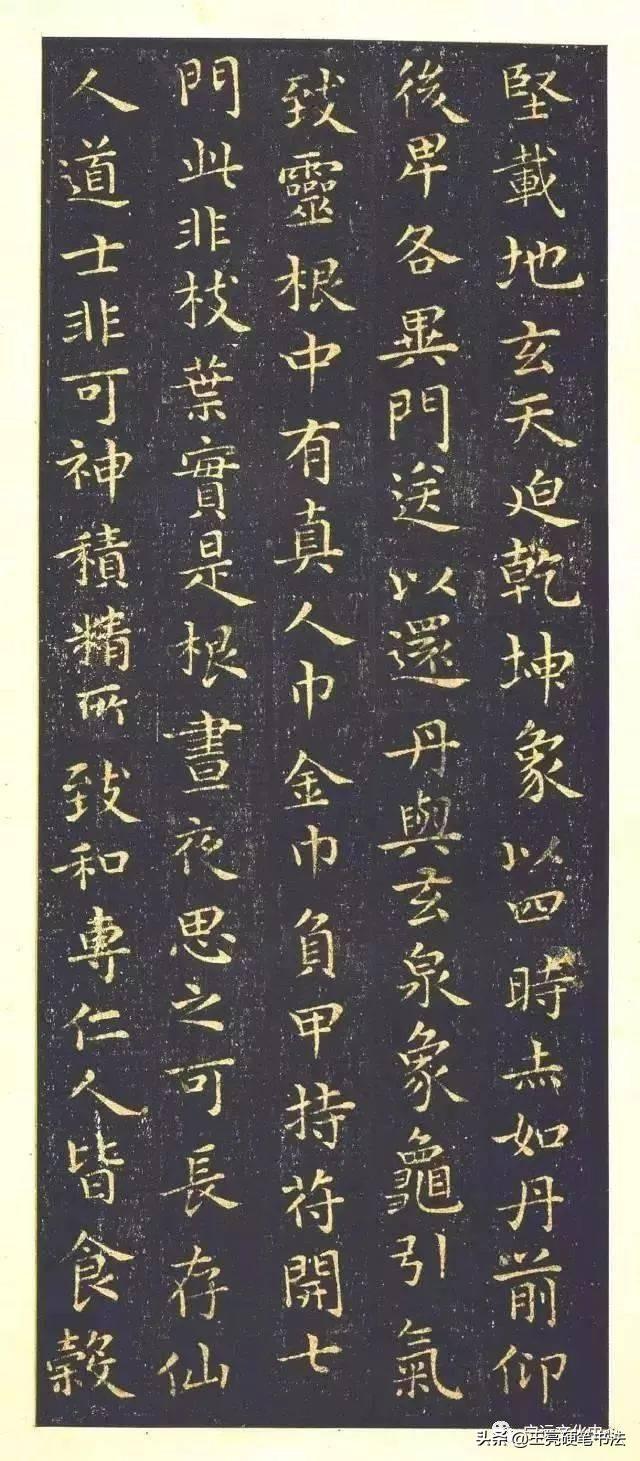 堅載地玄天迫乾坤象以四時赤如丹前仰
後卑各異門送以還丹與玄泉象龜引氣
致靈根中有真人巾金巾負甲持符開七
門此非枝葉實是根晝夜思之可長存仙
人道士非可神積精所致和專仁人皆食穀
头条@王亮硬笔书法